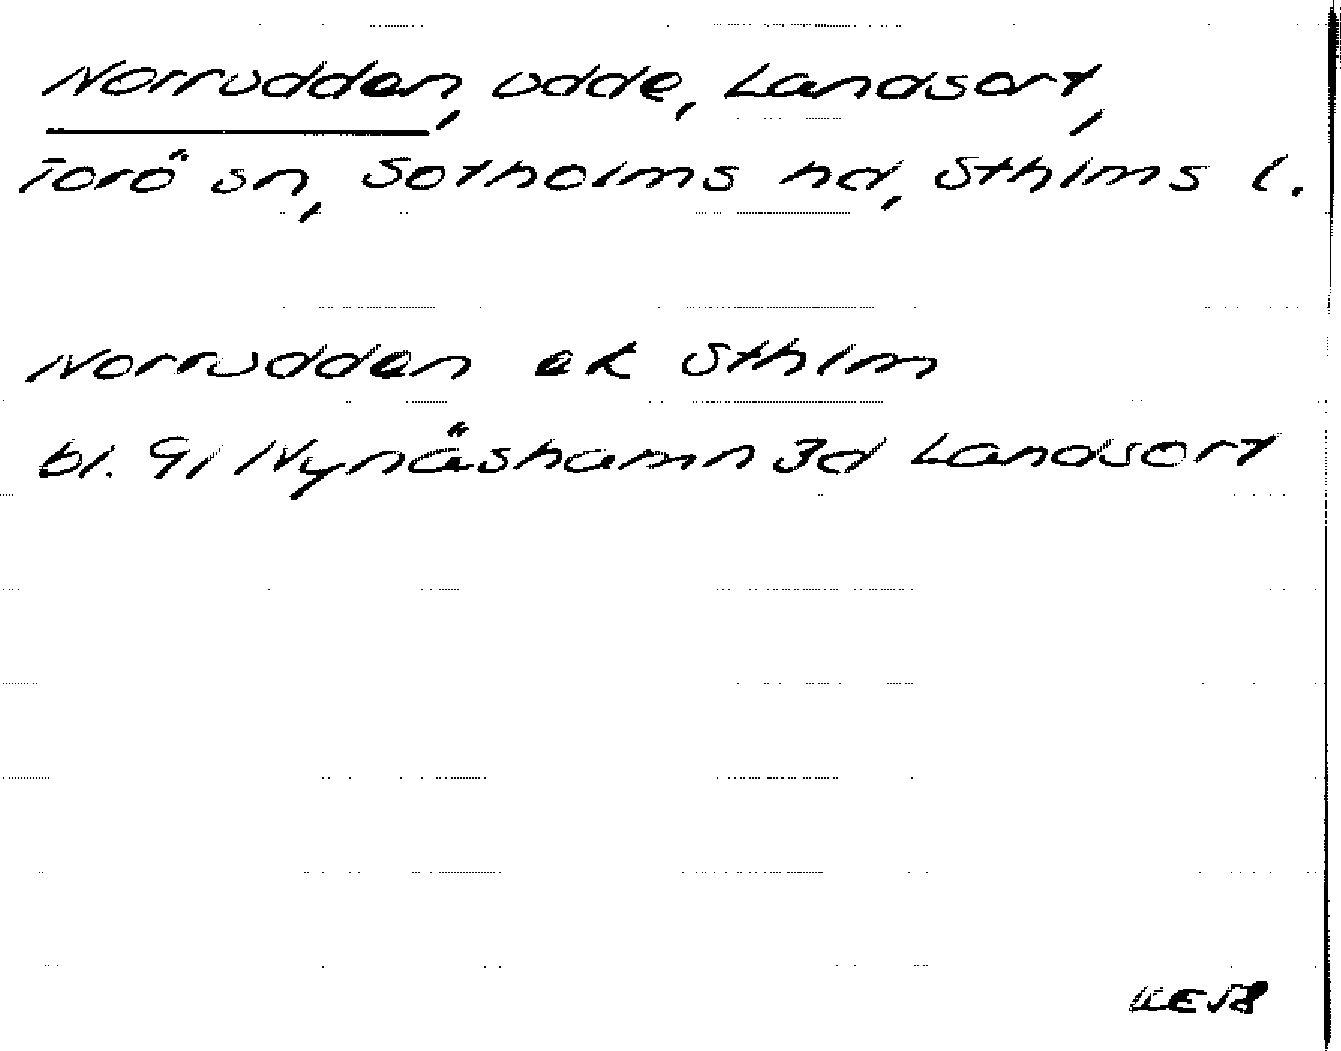 Norrudden, udde, Landsort,
Torö sn, Sotholms hd, Sthlms l.
Norrudden ek Sthlm
bl. 9I Nynäshamn 3d Landsort